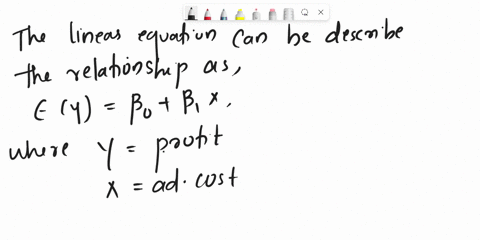 The lineas equation can be describe
the relationship as,
E (y) = β₀ + β₁ x,
where y = profit
x = ad. cost